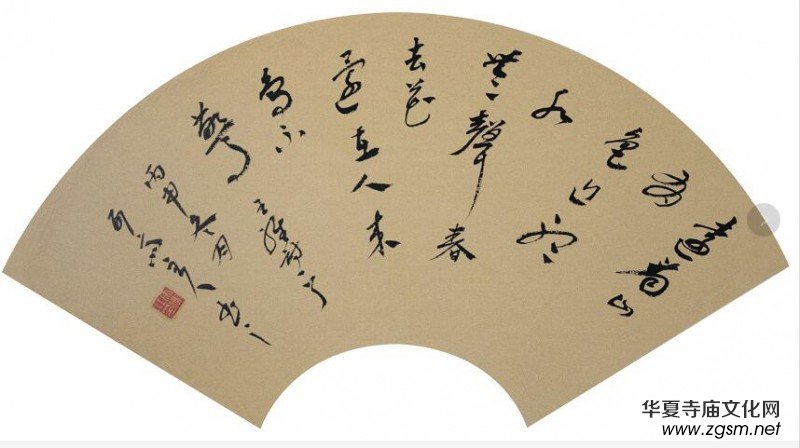 遠看山
有
色近聽
水
無聲春
去花
還在人來
鳥不
驚
王維詩
丙申冬月
書
华夏寺庙文化网
www.zgsm.net